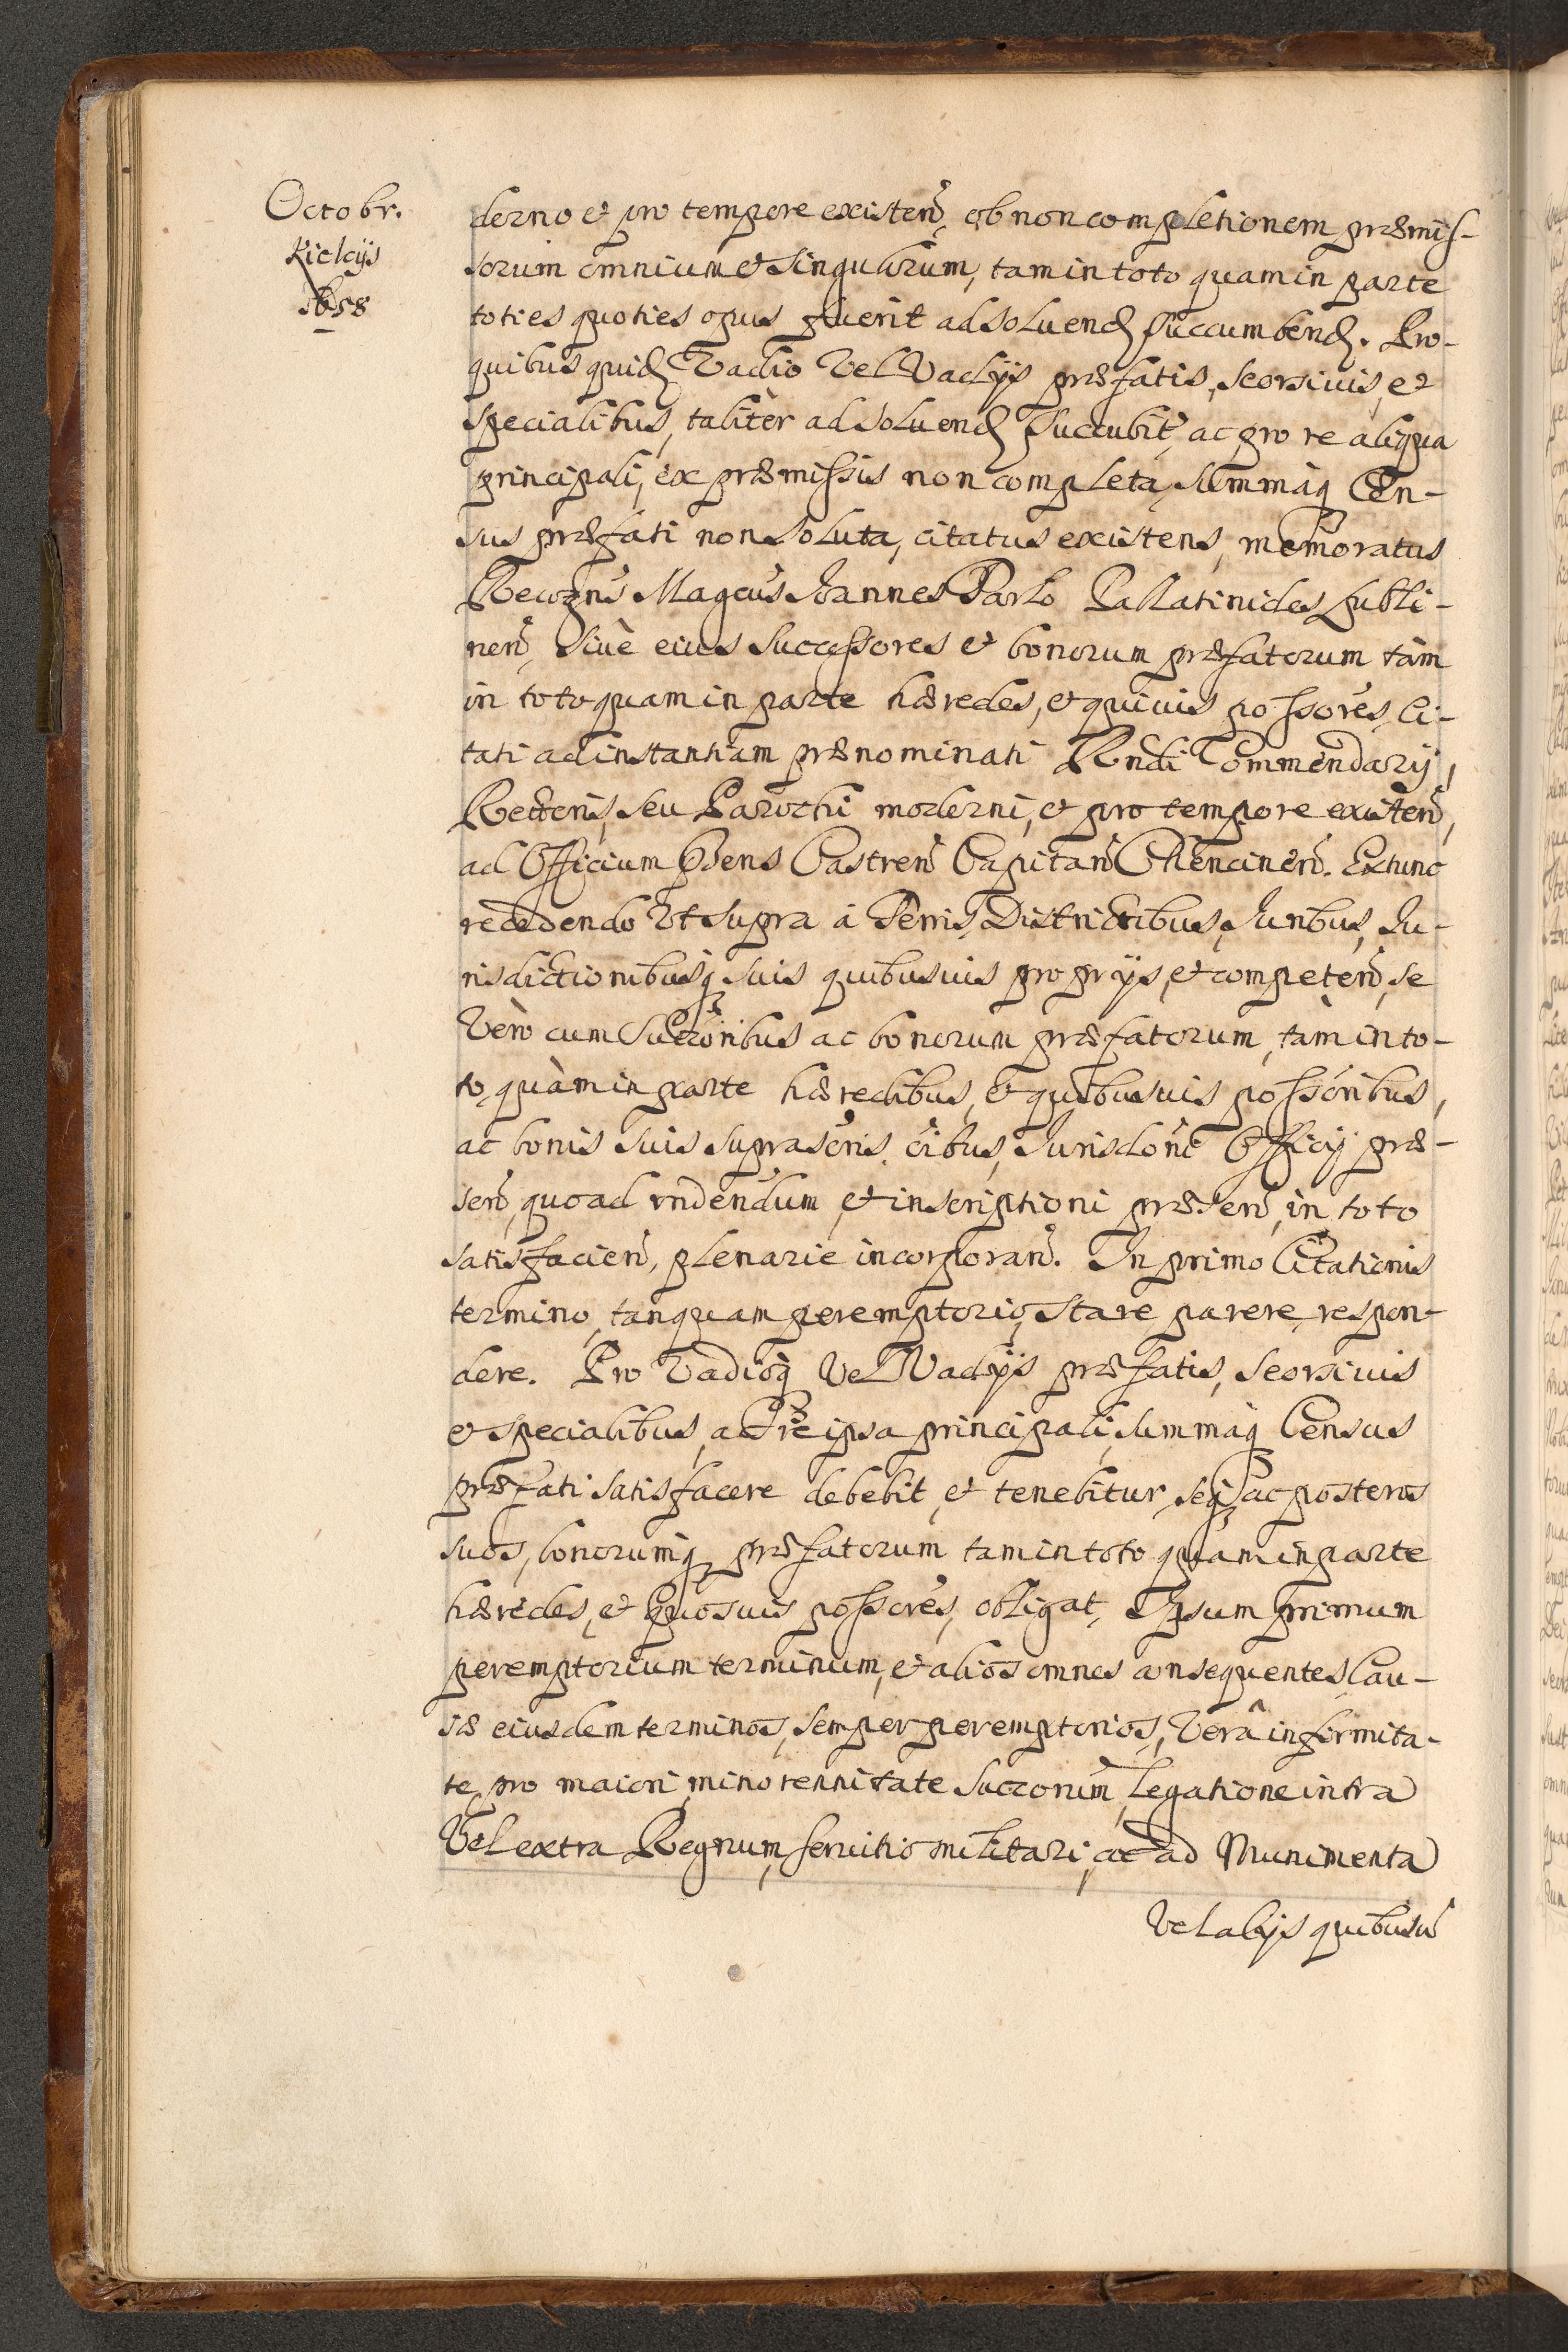 Octobr.
Kielcijs
1658
derno et pro tempore existen̄, ob non completionem præmis-
sorum omnium et singulorum, tam in toto quam in parte
toties quoties opus fuerit ad soluend succumbend. Pro-
quibus quid Vadio Vel Vadijs præfatis, seorsiuis, et
specialibus, taliter ad soluend succubit, ac pro re aliqua
principali, ex præmissis non completa, summaq Cen-
sus præfati non soluta, citatus existens, memoratus
Recogn̄s Magcus Ioannes Parlo Pallatinides Lubli-
nen̄, siuè eius successores et bonorum præfatorum tàm
in toto quam in parte hæredes, et quiuis possores, Ci-
tati ad instantiam prænominati Rndi Commendarij,
Rectoris, seu Parochi moderni, et pro tempore existen̄,
ad Officium p̄sens Castren̄ Capitan̄ Chencinen̄. Extunc
recedendo Vt supra à Terris, Districtibus, Iuribus, Iu-
risdictionibusq suis quibusuis proprijs, et competen̄, se
Vero cum Succōribus ac bonorum præfatorum, tàm in to-
to, quàm in parte hæredibus, et quibusuis possōribus,
ac bonis suis suprascris, oībus, Iurisdōni Officij præ-
sen̄, quo ad rndendum, et inscriptioni præsen̄, in toto
satisfacien̄, plenarie incorporan̄. In primo Citationis
termino, tanquam peremptorio, stare parere, respon-
dere. Pro Vadioq Vel Vadijs præfatis, seorsiuis
et specialibus, ac re ipsa principali, summaq Census
præfati satisfacere debebit, et tenebitur, seq ac posteros
suos, bonorumq præfatorum tam in toto quam in parte
hæredes, et quosuis possores, obligat, Ipsum primum
peremptorium terminum, et alios omnes consequentes Cau-
sæ eiusdem terminos, semper peremptorios, Verâ infirmita-
te, pro maiori, minorennitate Succorum, Legatione intra
Vel extra Regnum, seruitio militari, ac ad Munimenta
Vel alijs quibusu